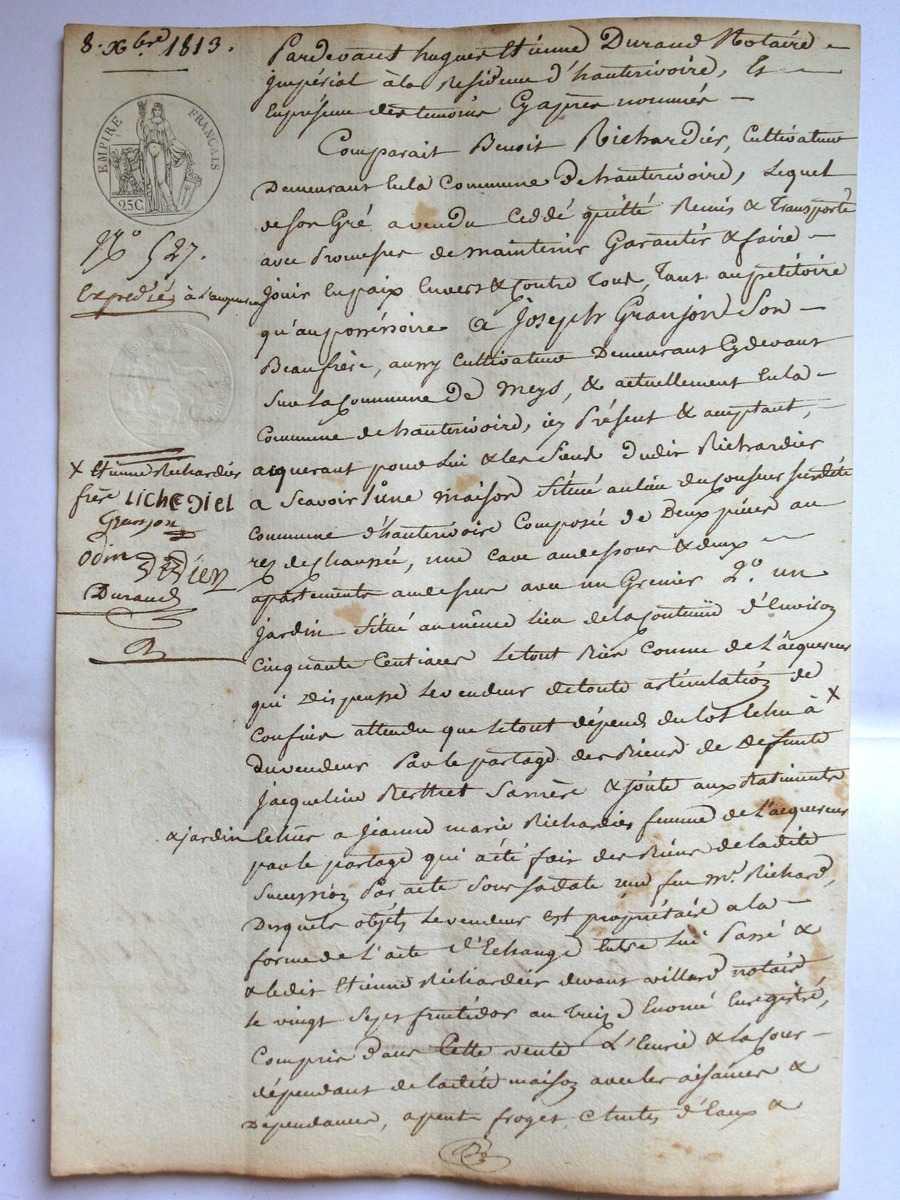 8. Xbre 1813.
EMPIRE FRANÇAIS
25C
N° 527.
Expediée à l'acquereur
X Etienne Richardier
frère LICHEDIEL
Granjon
Odin
Durand
Pardevant hugues Etienne Durand Notaire
jmpérial à la Residence d'hauterivoire, Et
En présence des temoins Cy apres nommés
Comparait Benoit Richardier, Cultivateur
Demeurant En la Commune de hauterivoire, Lequel
de son Gré a vendu Ceddé quitté Remis & Transporté
avec Promesse de maintenir Garantir & faire
Jouir En paix Envers & Contre Tous, Tant au petitoire
qu'au possessoire a Joseph Granjon Son
Beaufrère, aussy Cultivateur Demeurant Cydevant
Sur la Commune de Meys, & actuellement En la
Commune de hauterivoire, icy Présent & acceptant,
acquerant pour Lui & les Siens dudit Richardier
a Scavoir 1° une maison Située au Lieu du Conseur susdite
Commune d'hauterivoire Composée de Deux pièces au
rez de chaussée, une Cave au dessous & deux
apartements au dessus avec un Grenier 2° un
Jardin Situé au même Lieu de la Contenue d'Environ
Cinquante Centiares Le tout Bien Connu de L'acquereur
qui Dispense Le vendeur de toute articulation de
Confins attendu que Le tout dépend du Lot Echu à X
du vendeur Par le partage des Biens de Defunte
Jacqueline Berthet Sa mère & joute aux Batiments
& jardin Echus a Jeanne marie Richardier femme de L'acquereur
par le partage qui a été fait des Biens de ladite
Sucession Par acte Sous sa date reçu feu Me. Richard,
Desquels objets Le vendeur Est propriétaire a la
forme de L'acte d'Echange Entre Lui Passé &
& ledit Etienne Richardier devant willard notaire
Le vingt Sept fructidor an Treize Enomé Enregistré,
Compris dans Cette vente L'Ecurie & la Cour
dépendant de ladite maison avec les aisances &
Dependances, apent froget Chutes d'Eaux &